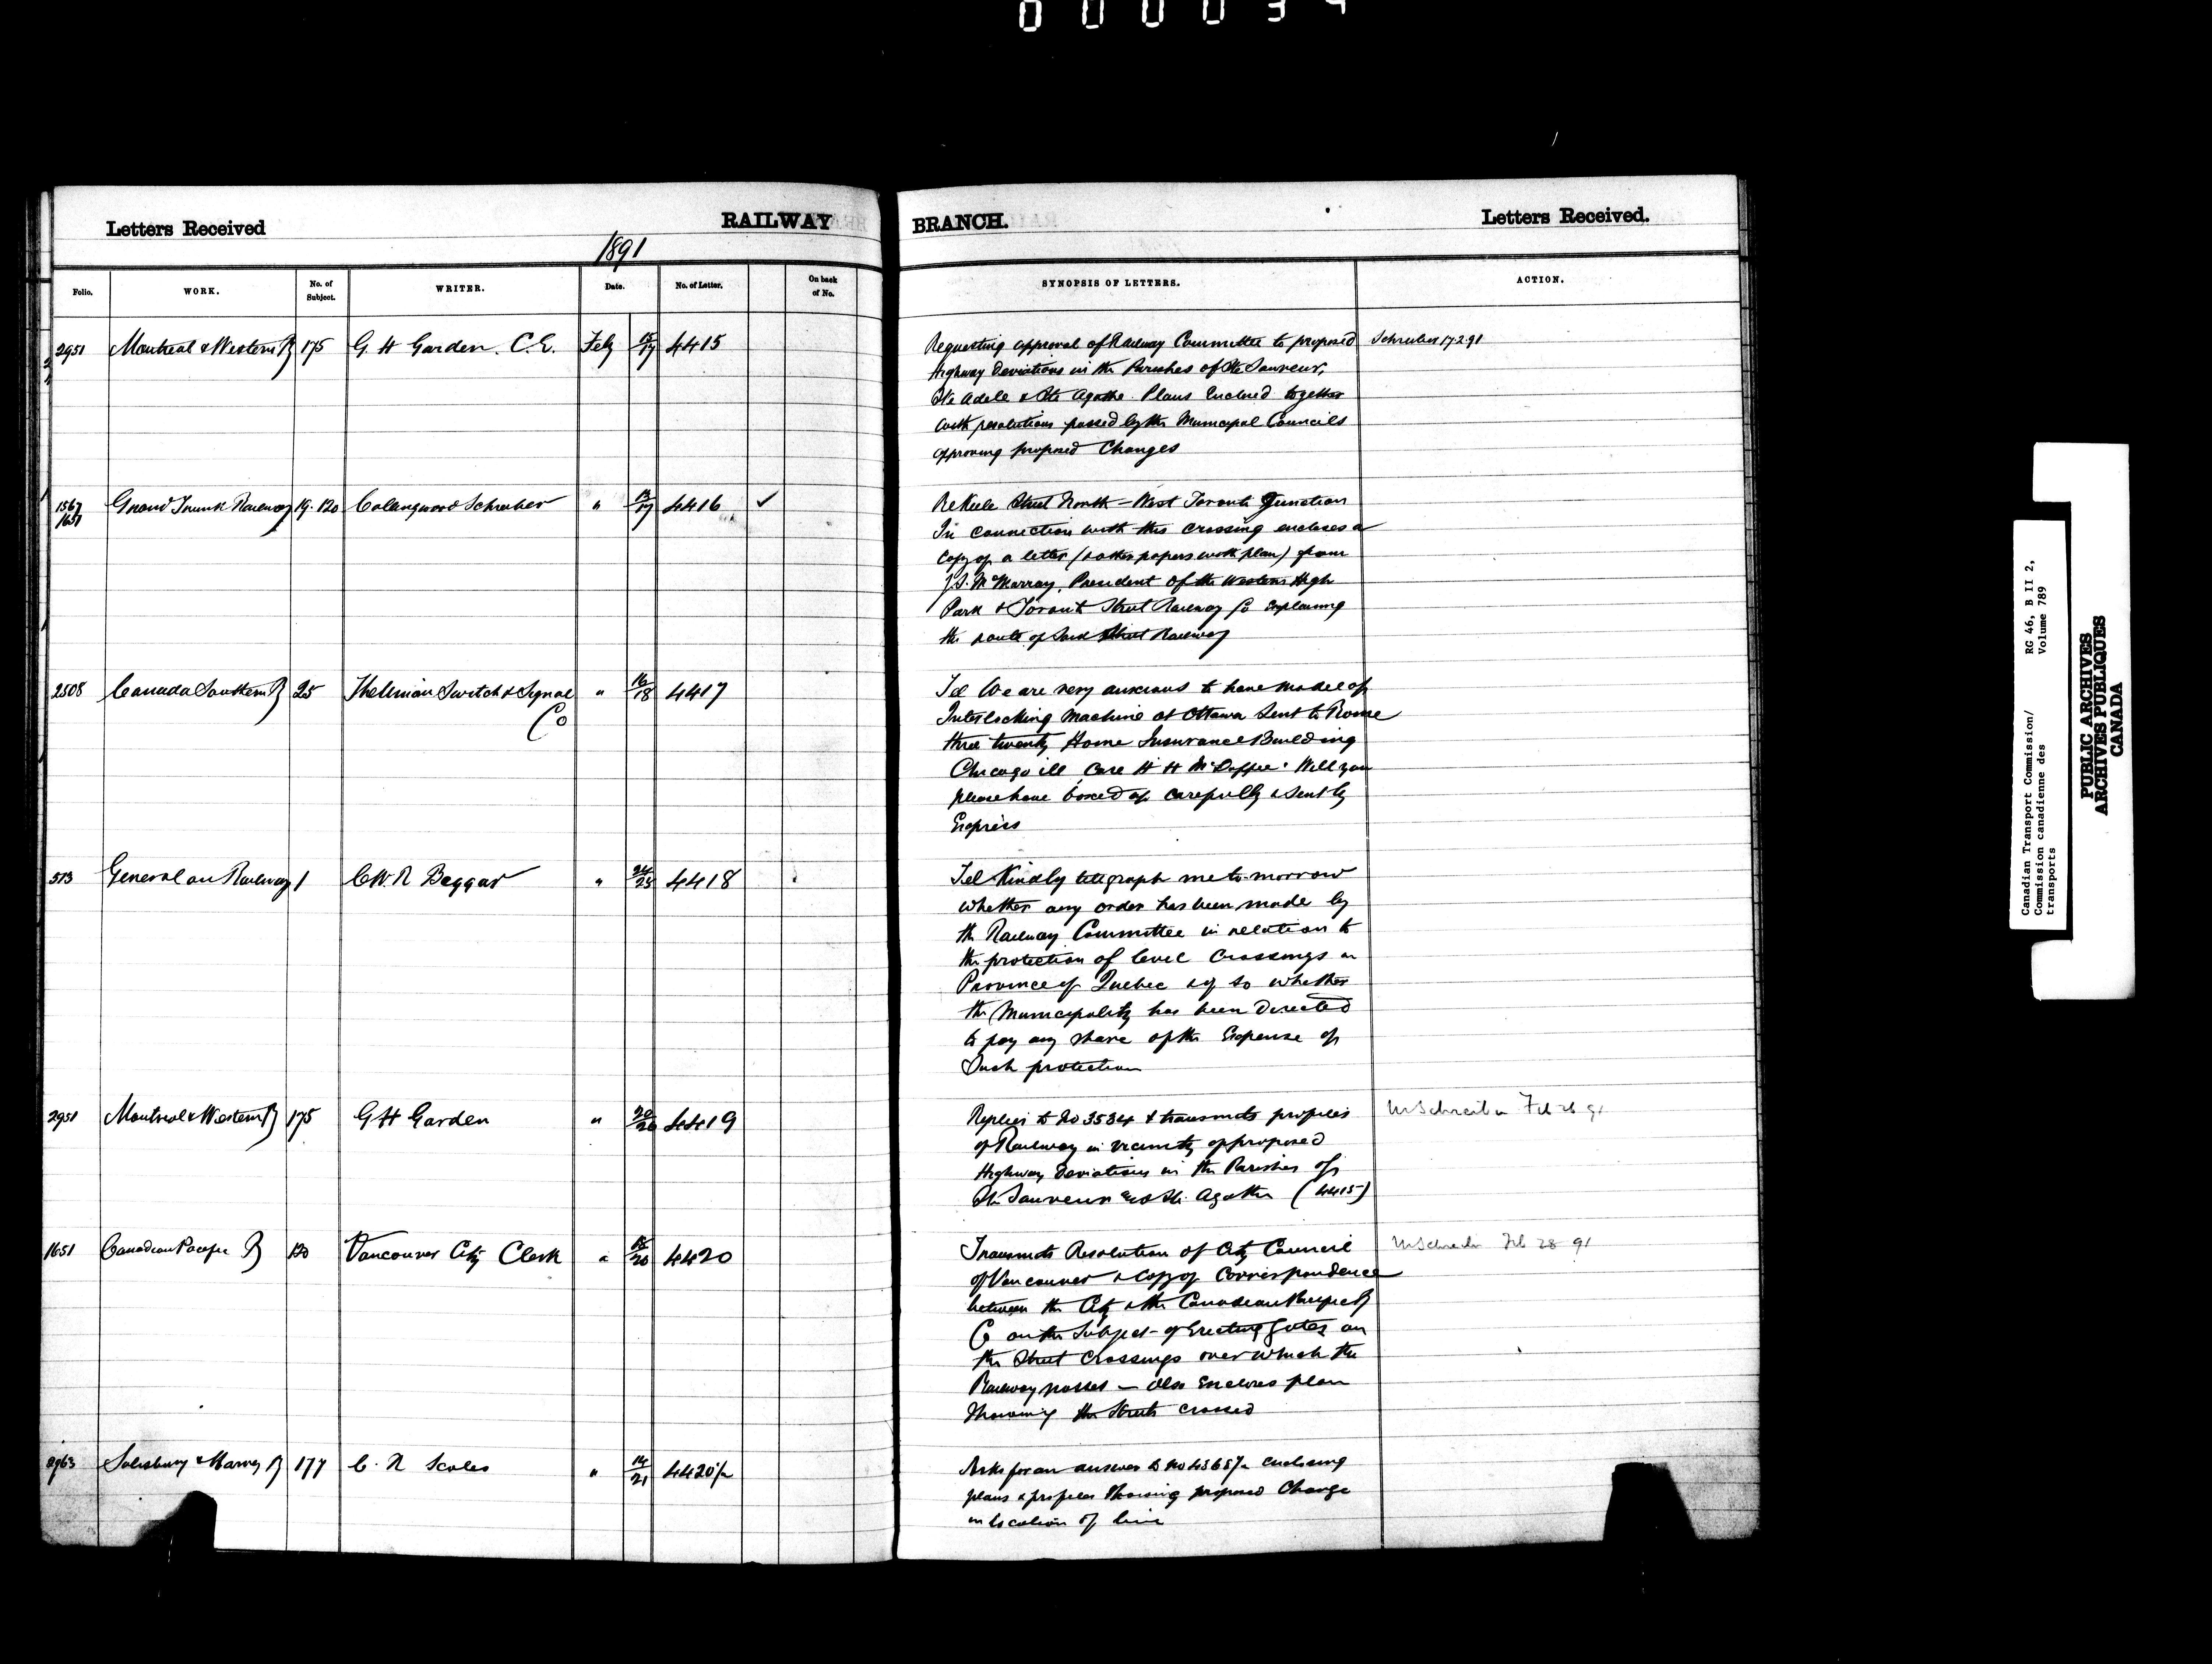 000034
Letters Received
RAILWAY
BRANCH.
Letters Received.
1891
Folio.
WORK.
No. of Subject.
WRITER.
Date.
No. of Letter.
On back of No.
SYNOPSIS OF LETTERS.
ACTION.
2951 Montreal & Western Ry 175 G. H Garden. C.E. Feby 15/17 4415
Requesting approval of Railway Committee to proposed
Highway Deviations in the Parishes of St Sauveur,
Ste Adele & Ste Agathe. Plans Enclosed together
with resolutions passed by the Municipal Councils
approving proposed Changes
Schreiber 17.2.91
1567
1651 Grand Trunk Railway 19. 120 Collingwood Schreiber " 13/17 4416 ✓
Re Keele Street North - West Toronto Junction
In connection with this crossing encloses a
Copy of a letter (& other papers with plan) from
McMurray, President of the Western High
Park & Toronto Street Railway Co Explaining
the route of said Street Railway
2508 Canada Southern Ry 25 Switch & Signal
Co " 16/18 4417
Tel We are very anxious to have model of
Interlocking machine at Ottawa Sent to Rome
three twenty Home Insurance Building
Chicago ill care H H McDuffee. Will you
please have boxed up carefully & sent by
Express
573 General on Railways 1 C.W.R Beggar " 24/25 4418
Tel Kindly telegraph me to-morrow
whether any order has been made by
the Railway Committee in relation to
the protection of level Crossings in
Province of Quebec & if so whether
the Municipality has been Directed
to pay any share of the Expense of
Such protection
2951 Montreal & Western Ry 175 G H Garden " 20/26 4419
Replies to No 3534 & transmits profiles
of Railway in vicinity of proposed
Highway Deviations in the Parishes of
St Sauveur and Ste Agathe (4415)
Mr Schreiber Feb 26 91
1651 Canadian Pacific Ry 120 Vancouver City Clerk " 18/26 4420
Transmits Resolution of City Council
of Vancouver & Copy of Correspondence
between the City & the Canadian Pacific Ry
Co on the Subject of Erecting Gates on
the Street Crossings over which the
Railway passes - also Encloses plan
Showing the Streets crossed
Mr Schreiber Feb 28 91
2963 Salisbury & Harvey Ry 177 C. N Scales " 14/21 4420½
Asks for an answer to No 4365½ enclosing
plans & profiles Showing proposed Change
in location of line
Canadian Transport Commission/
Commission canadienne des
transports
RG 46, B II 2,
Volume 789
PUBLIC ARCHIVES
ARCHIVES PUBLIQUES
CANADA